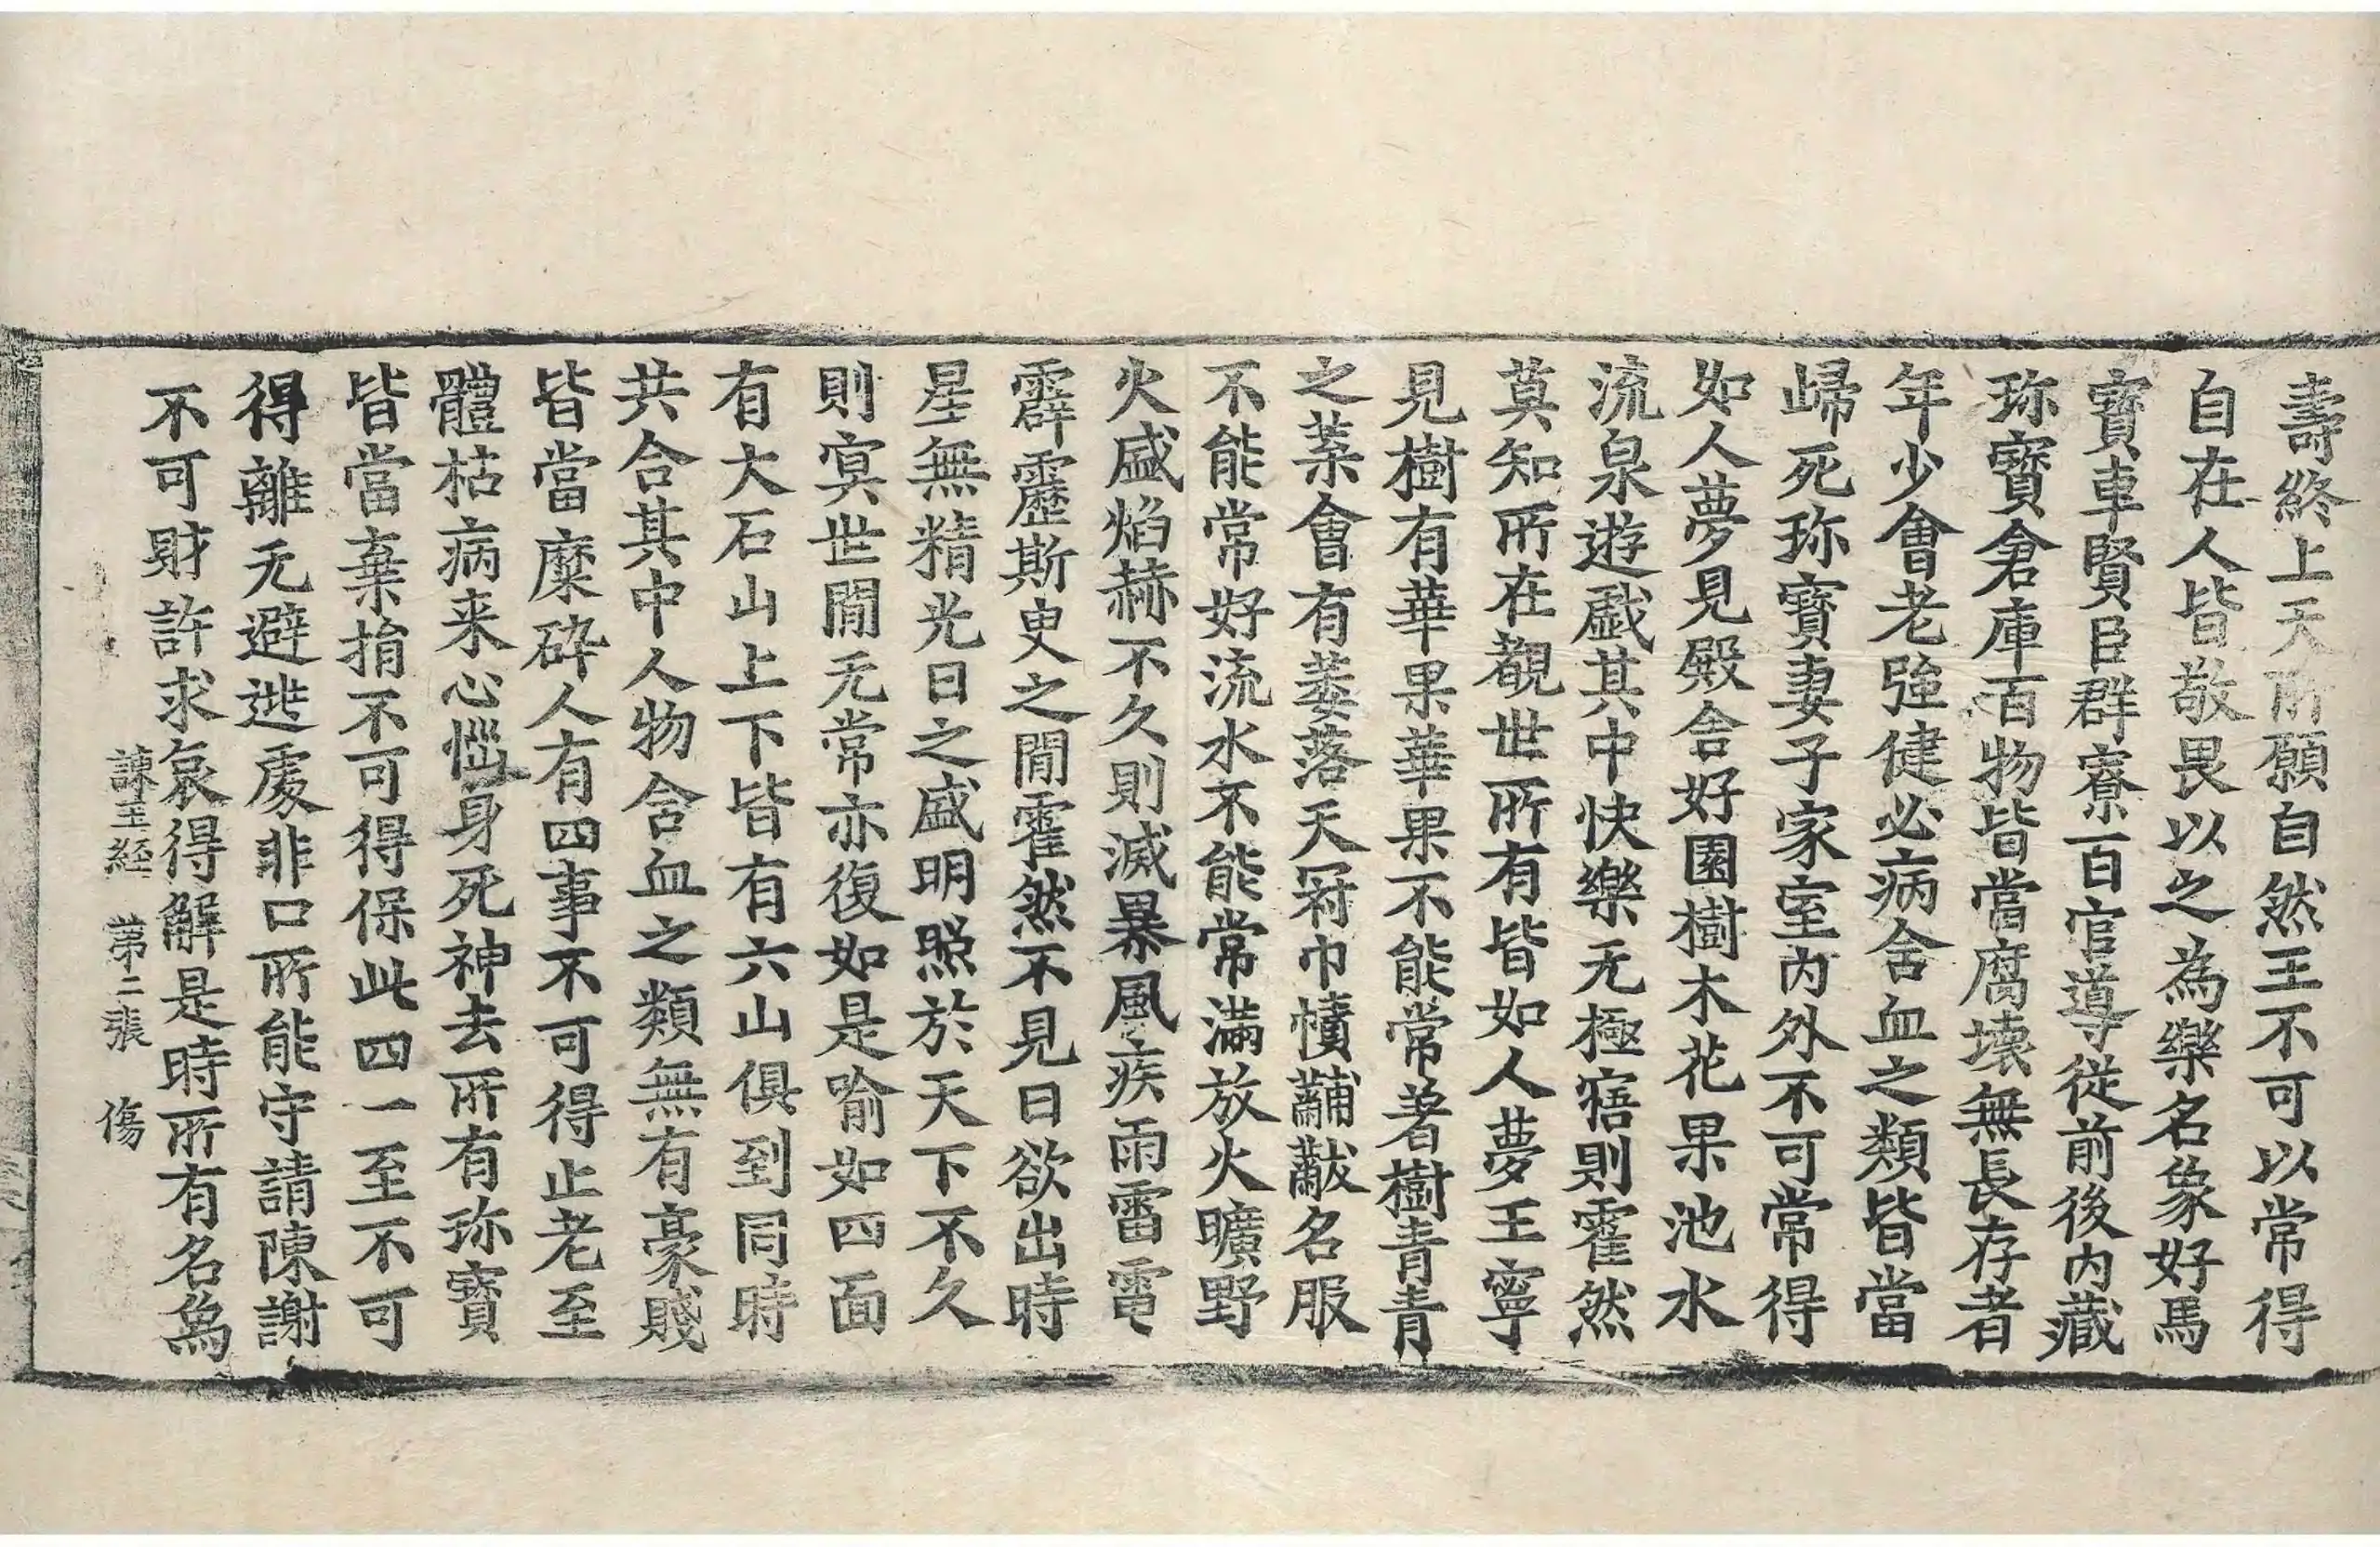 壽終上天所願自然王不可以常得
自在人皆敬畏以之為樂名象好馬
寶車賢臣群寮百官導從前後内藏
珎寶倉庫百物皆當腐壞無長存者
年少會老強健必病含血之類皆當
歸死珎寶妻子家室内外不可常得
如人夢見殿舍好園樹木花果池水
流泉遊戲其中快樂无極寤則霍然
莫知所在觀世所有皆如人夢王寧
見樹有華果華果不能常著樹青青
之葉會有萎落天冠巾幘黼黻名服
不能常好流水不能常滿放火曠野
火盛焰赫不久則滅暴風疾雨雷電
霹靂斯臾之閒霍然不見日欲出時
星無精光日之盛明照於天下不久
則冥世閒无常亦復如是喻如四面
有大石山上下皆有六山俱到同時
共合其中人物含血之類無有豪賤
皆當糜碎人有四事不可得止老至
體枯病来心惱身死神去所有珎寶
皆當棄捐不可得保此四一至不可
得離无避逃處非口所能守請陳謝
不可財許求哀得解是時所有名為
諫王經 第二張 傷